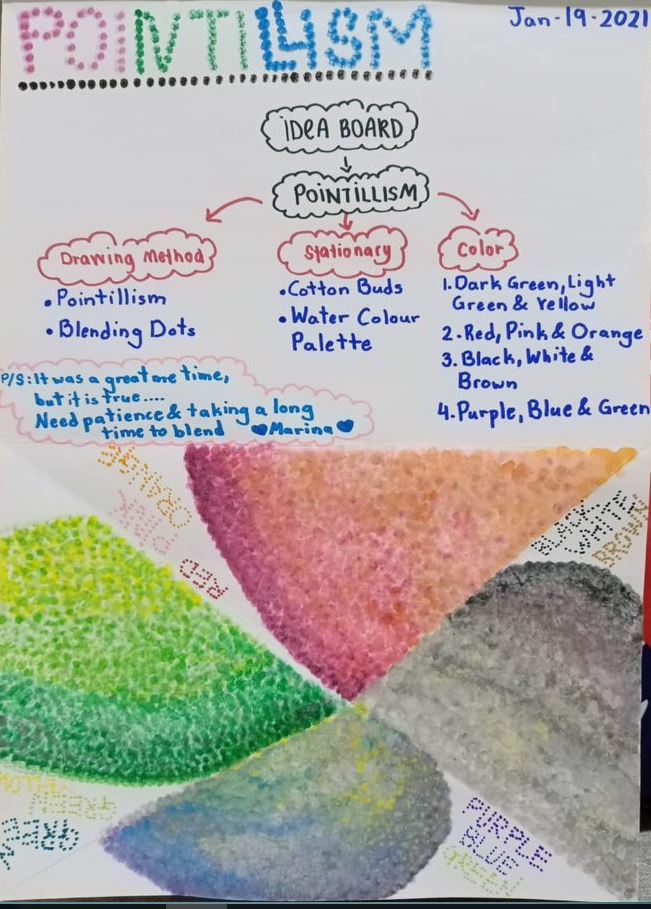 POINTILLISM
Jan-19-2021
IDEA BOARD
POINTILLISM
Drawing Method
• Pointillism
• Blending Dots
Stationary
• Cotton Buds
• Water Colour
Palette
Color
1. Dark Green, Light
Green & Yellow
2. Red, Pink & Orange
3. Black, White &
Brown
4. Purple, Blue & Green
P/S: It was a great me time,
but it is true....
Need patience & taking a long
time to blend ♥Marina♥
ORANGE
PINK
RED
BLACK
WHITE
BROWN
YELLOW
GREEN
GREEN
PURPLE
BLUE
GREEN